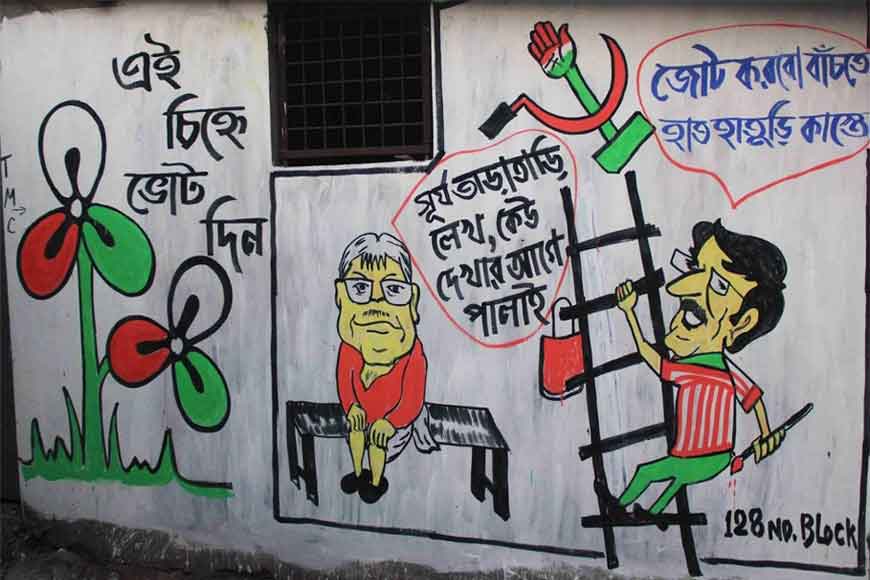 এই
চিহ্নে
ভোট
দিন
TMC
সূর্য তাড়াতাড়ি
লেখ, কেউ
দেখার আগে
পালাই
জোট করবো বাঁচতে
হাত হাতুড়ি কাস্তে
128 NO. BLOCK